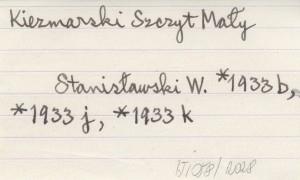 Kiezmarski Szczyt Mały
Stanisławski W. *1933 b,
*1933 j, *1933 k